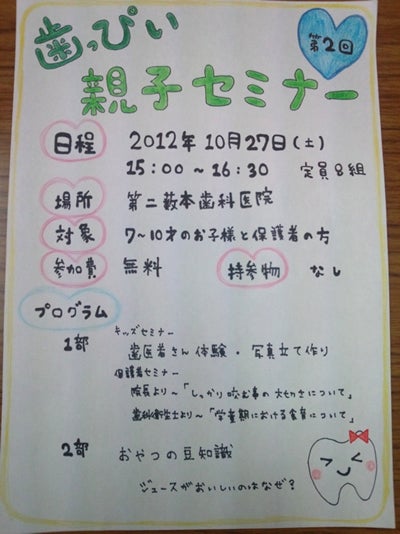 歯っぴぃ
第2回
親子セミナー
日程 2012年10月27日(土)
15:00~16:30 定員8組
場所 第二薮本歯科医院
対象 7~10才のお子様と保護者の方
参加費 無料 持参物 なし
プログラム
キッズセミナー
1部 歯医者さん体験・写真立て作り
保護者セミナー
院長より~「しっかり咬む事の大切さについて」
歯科衛生士より~「学童期における食育について」
2部 おやつの豆知識
ジュースがおいしいのはなぜ?